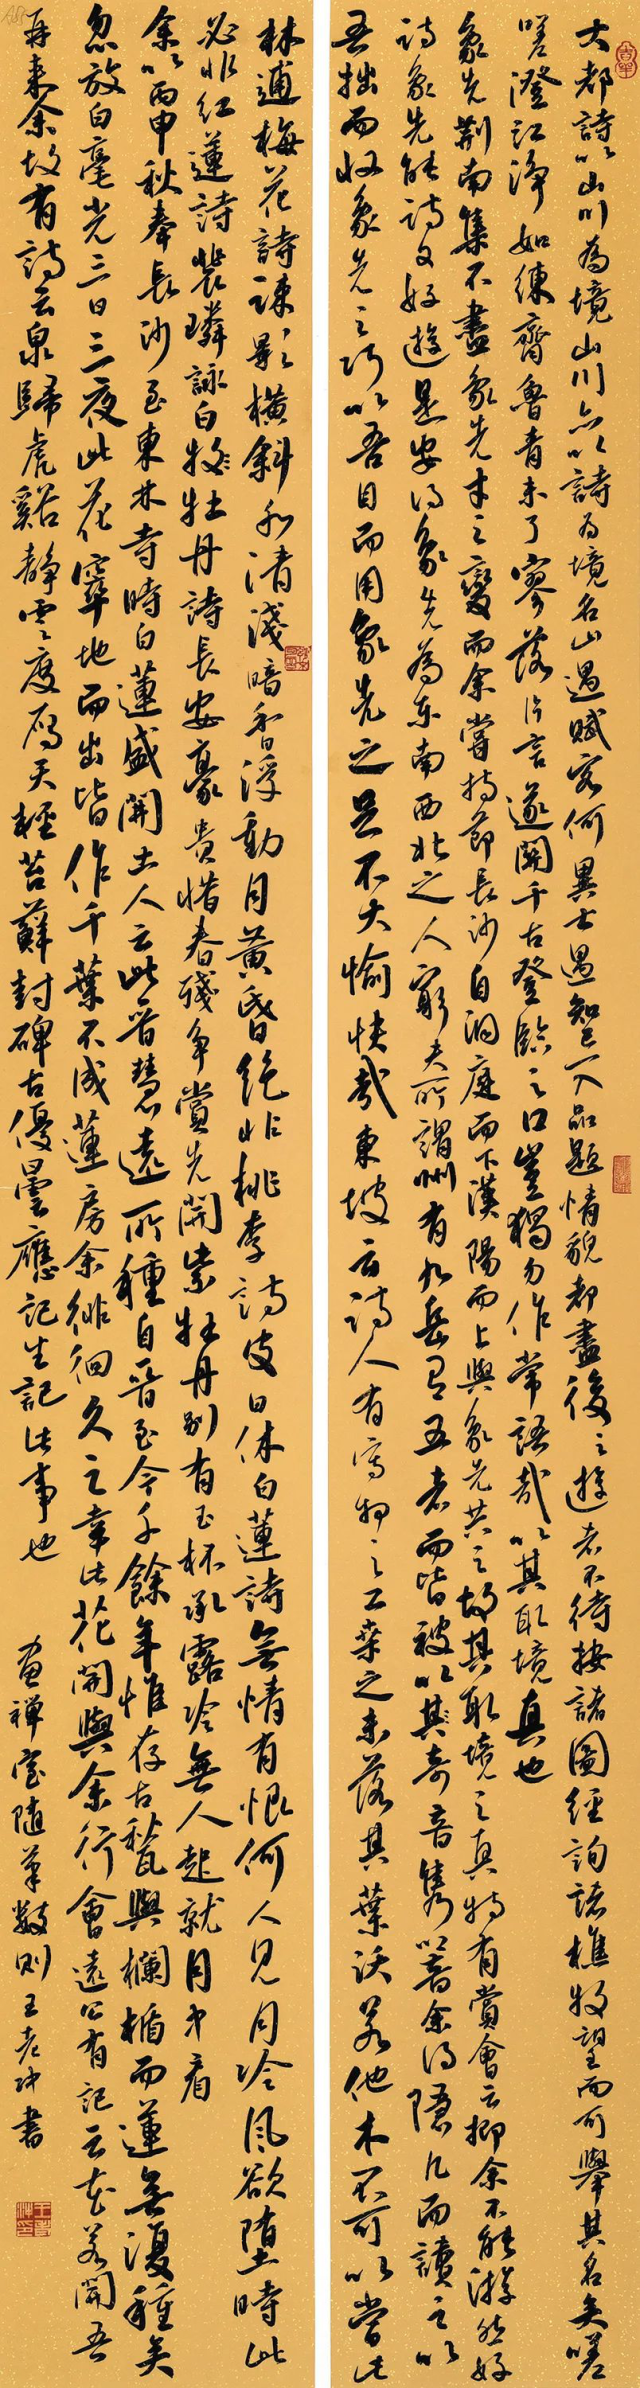 大都詩以山川為境山川亦以詩為境名山遇賦客何異士遇知己一入品題情貌都盡後之遊者不待按諸圖經詢諸樵牧望而可舉其名矣嗟
嗟澄江淨如練齊魯青未了寥落片言遂開千古登臨之口豈獨勿作常語哉以其取境真也
象先荆南集不盡象先才之變而余嘗持節長沙自洞庭而下漢陽而上與象先共之故其取境之真特有賞會云抑余不能游然好
詩象先能詩又好遊是安得象先為東南西北之人窮夫所謂州有九岳有五者而皆被以其奇音雋響余得隱几而讀之以
吾拙而收象先之巧以吾目而用象先之足不大愉快哉東坡云詩人有寫物之工桑之未落其葉沃若他木不可以當此
林逋梅花詩疎影橫斜水清淺暗香浮動月黃昏絕非桃李詩皮日休白蓮詩無情有恨何人見月冷風欲墮時此
必非紅蓮詩裴璘詠白牡丹詩長安豪貴惜春殘爭賞先開紫牡丹別有玉杯承露冷無人起就月中看
余以丙申秋奉長沙至東林寺時白蓮盛開土人云此晉慧遠所種自晉至今千餘年惟存古甃與欄楯而蓮無復種矣
忽放白毫光三日三夜此花穿地而出皆作千葉不成蓮房余徘徊久之幸此花開與余行會遠公有記云花若開吾
再來余故有詩云泉歸虎谿靜雲度雁天輕苔蘚封碑古優曇應記生記此事也
畫禪室隨筆數則王老沖書